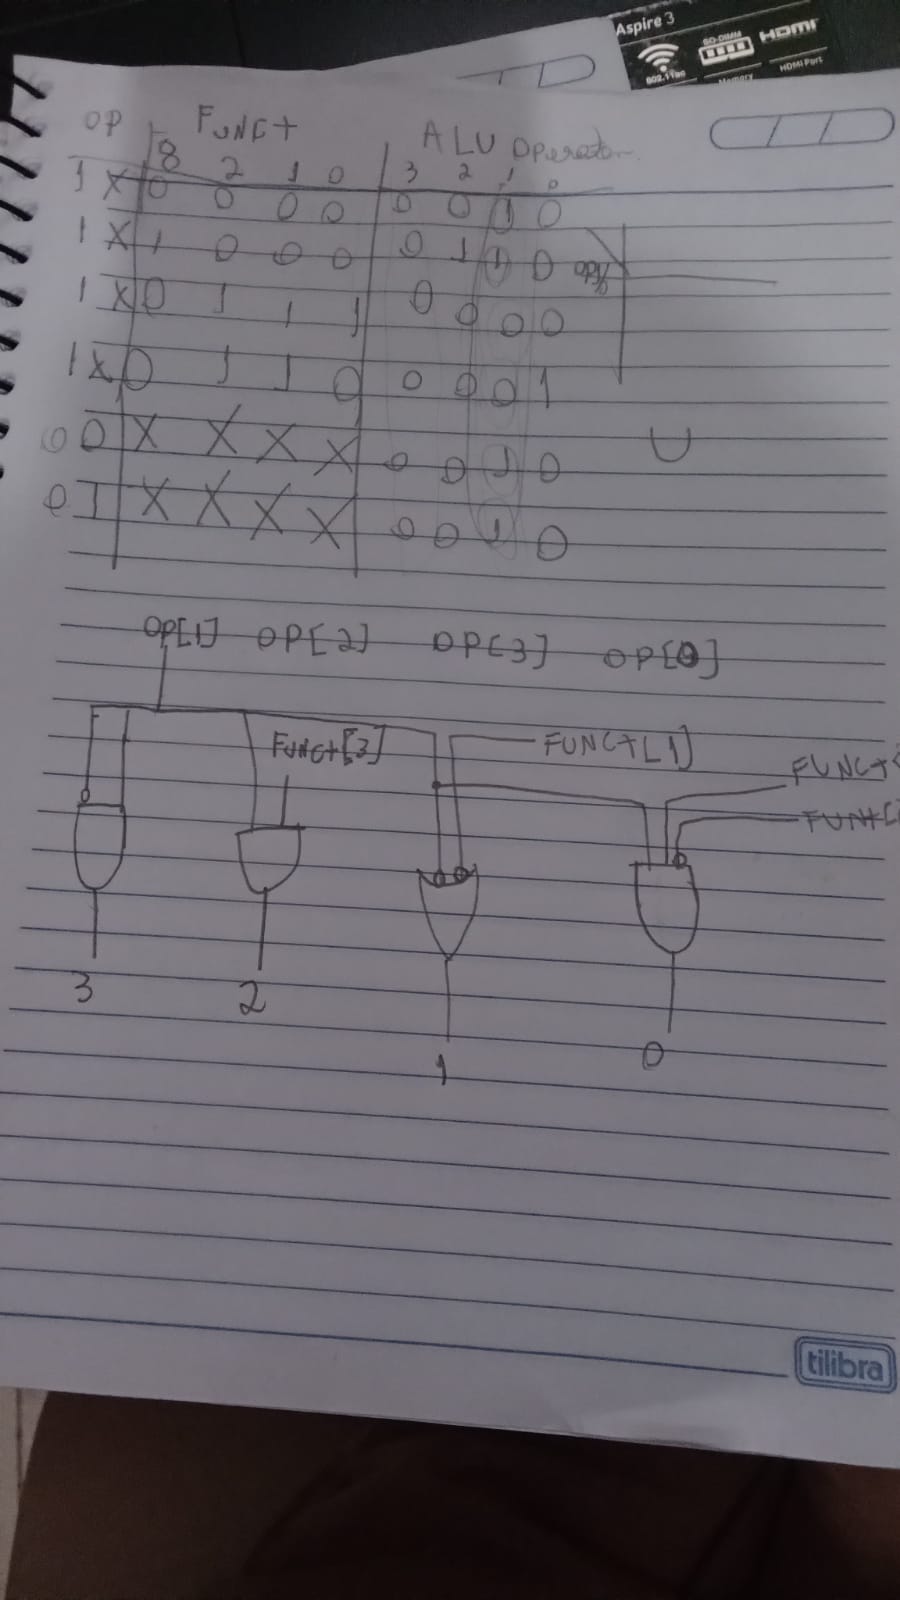 Aspire 3
802.11ac
SO-DIMM
Memory
HDMI
HDMI Port
OP FUNCT ALU Operation
8 2 1 0 3 2 1 0
1 X 0 0 0 0 0 0 1 0
1 X 1 0 0 0 0 1 1 0
1 X 0 1 1 1 0 0 0 0
1 X 0 1 1 0 0 0 0 1
0 0 X X X X 0 0 1 0
0 1 X X X X 0 0 1 0
OP[1] OP[2] OP[3] OP[0]
FUNCT[3] FUNCT[1] FUNCT
FUNT[
3 2
1 0
tilibra